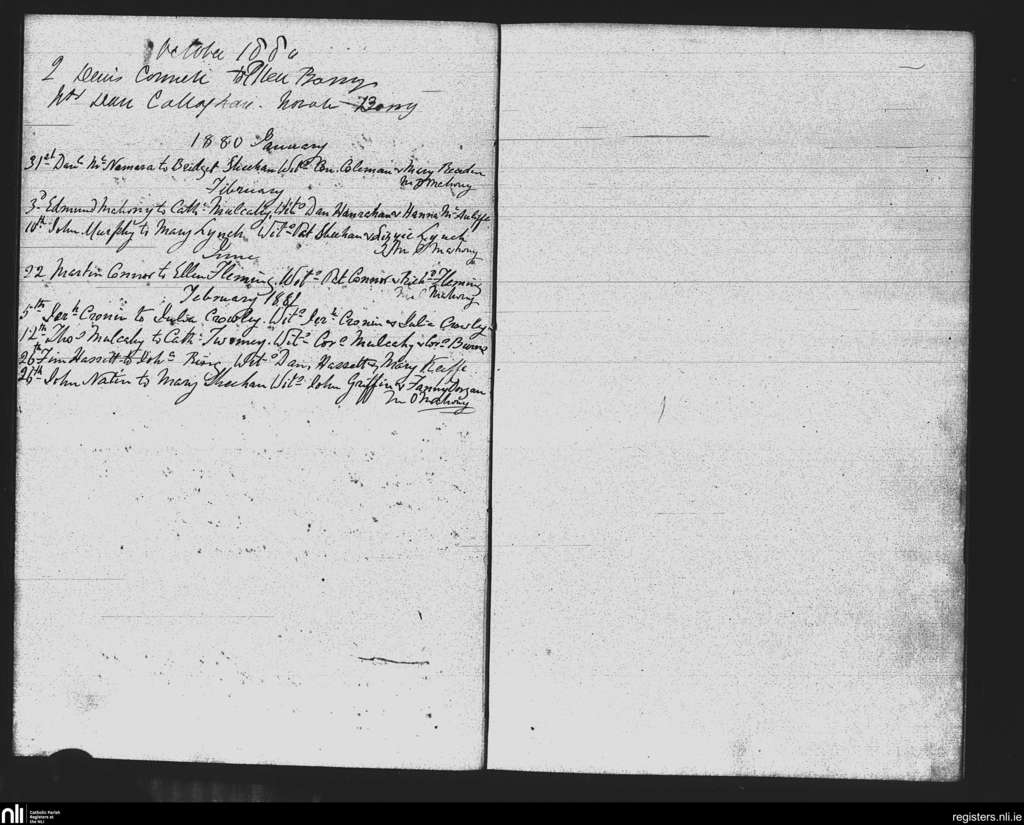 October 1880
2 Denis Connell to Ellen Barry
Wts Dan Callaghan. Norah Barry
1880 January
31st Danl McNamara to Bridget Sheehan Wits Con. Coleman & Mary
M O'Mahony
February
3d Edmund Mahony to Cathe Mulcahy, Wits Dan Hanrahan & Hanna McAuliffe
10th John Murphy to Mary Lynch Wits Pat Sheehan & Lizzie Lynch
M O'Mahony
June
22 Martin Connor to Ellen Fleming. Wits Pat Connor & Richd Fleming
M O'Mahony
February 1881
5th Jerh Cronin to Julia Crowley. Wits Jerh Cronin & Julia Crowley
12th Thos Mulcahy to Cath: Twomey. Wits Cors Mulcahy &
26th Tim Hassett to Joha Ring Wits Danl Hassett & Mary Keeffe
26th John to Mary Sheehan Wits John Griffin & Fanny Dorgan
M O'Mahony
nli
Catholic Parish
Registers at
the NLI
registers.nli.ie